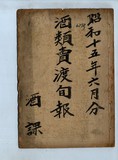 昭和十五年六月分
酒類賣渡旬報
酒課